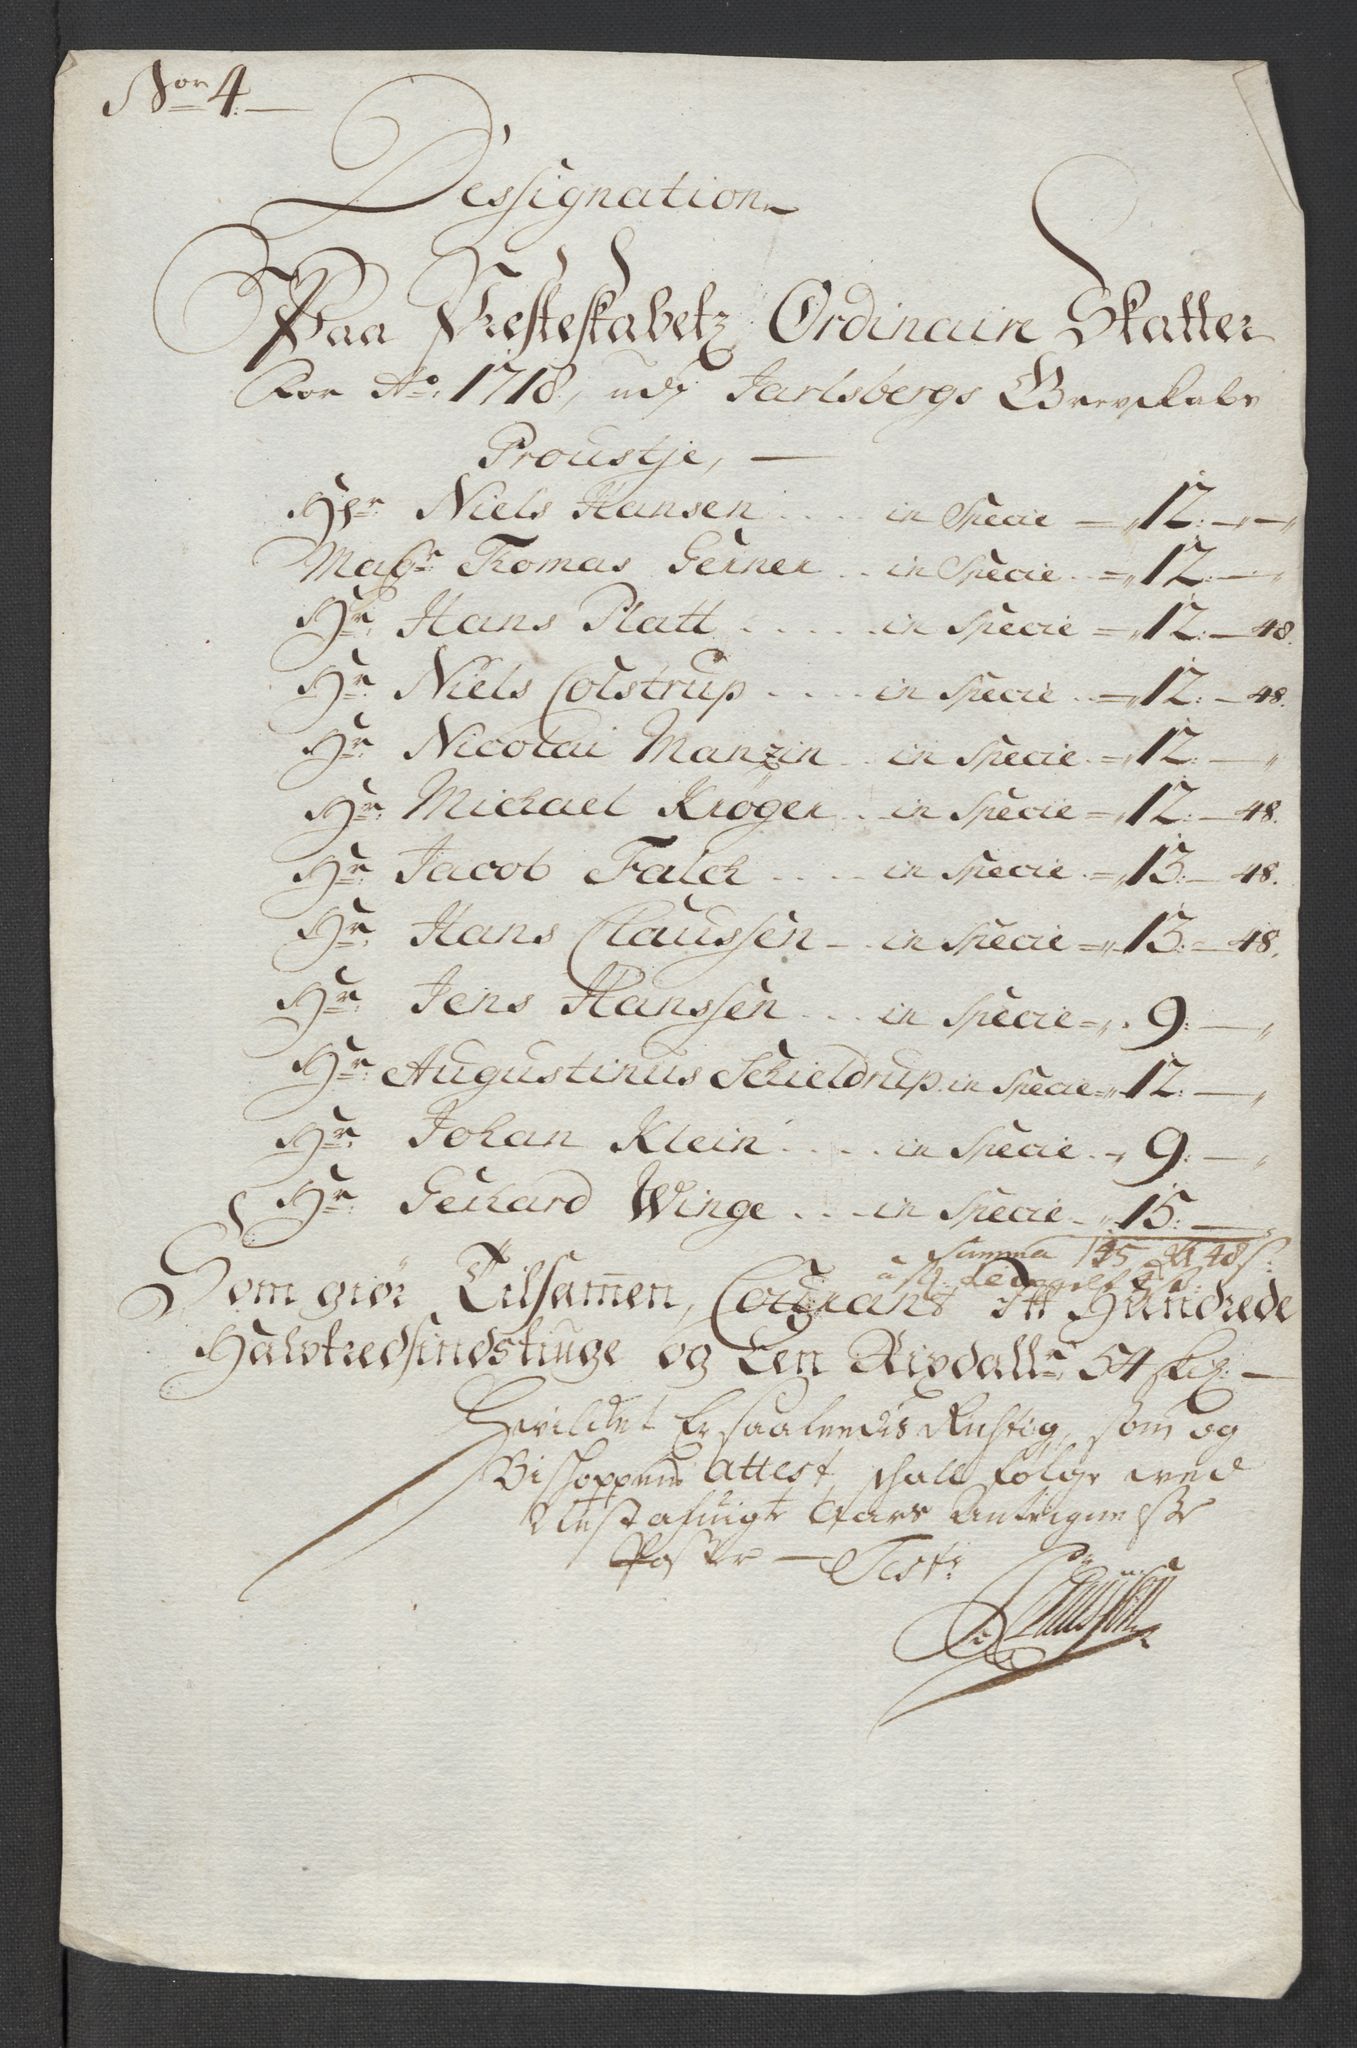 Nor 4.
Dessignation
Paa Presteskabetz Ordinaire Skatter
For Ao. 1718, udj Jarlsbergs Grevskabs
Proustje,
Hr. Niels Hansen .... in Specie = 12: - -
Magr. Thomas Gerner .. in Specie . = 12: -
Hr. Hans Platt ..... in Specie = 12: - 48.
Hr. Niels Colstrup .... in Specie . = 12: - 48.
Hr. Nicolai Manzin .. in Specie . = 12: -
Hr. Michael Krøger .. in Specie = 12: - 48.
Hr. Jacob Falch .... in Specie . = 13: - 48.
Hr. Hans Claussen - in Specie = 13: - 48.
Hr. Jens Hanssen ... in Specie = 9: -
Hr. Augustinus Schieldrup in Specie = 12: -
Hr. Johan Klein .... in Specie . - 9: -
Hr. Gerhard Winge ... in Specie - 15: -
Summa 145 Rd 48 s:
Som giør Tilsamen, Courant Itt Hundrede
Halvtredsindstiuge og Een Rixdallr. 54 skil: -
Hvilket Er saaledis Rigtig, som og
Bishoppens Attest, skall følge med
Aars Antegnelser
Poster - Test:
Claussen